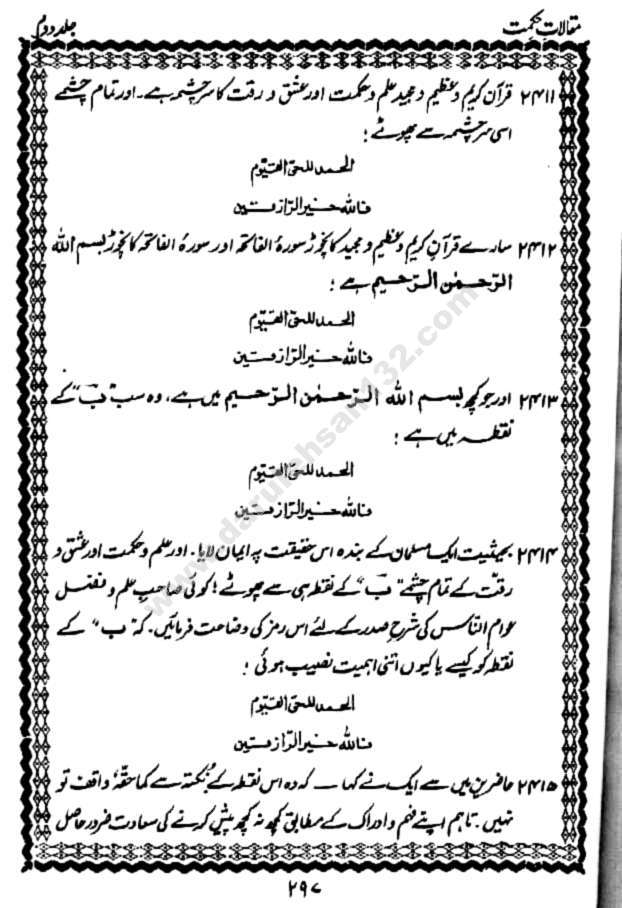 مقالاتِ حکمت
جلد دوم
۲۴۱۱ قرآن کریم و عظیم و مجید علم و حکمت اور عشق و رقت کا سرچشمہ ہے۔ اور تمام چشمے
اسی سرچشمہ سے پھوٹے ؛
الحمد للحی القیوم
فاللہ خیر الرازقین
۲۴۱۲ سارے قرآنِ کریم و عظیم و مجید کا نچوڑ سورۃ الفاتحہ اور سورۃ الفاتحہ کا نچوڑ بسم اللہ
الرّحمٰن الرّحیم ہے ؛
الحمد للحی القیوم
فاللہ خیر الرازقین
۲۴۱۳ اور جو کچھ بسم اللہ الرّحمٰن الرّحیم میں ہے، وہ سب "ب" کے
نقطہ میں ہے ؛
الحمد للحی القیوم
فاللہ خیر الرازقین
۲۴۱۴ بحیثیت ایک مسلمان کے بندہ اس حقیقت پہ ایمان لایا۔ اور علم و حکمت اور عشق و
رقت کے تمام چشمے "ب" کے نقطہ ہی سے پھوٹے ؛ کوئی صاحبِ علم و فضل
عوام الناس کی شرحِ صدر کے لئے اس رمز کی وضاحت فرمائیں۔ کہ "ب" کے
نقطہ کو کیسے یا کیوں اتنی اہمیت نصیب ہوئی ؛
الحمد للحی القیوم
فاللہ خیر الرازقین
۲۴۱۵ حاضرین میں سے ایک نے کہا — کہ وہ اس نقطہ کے نکتہ سے کماحقہٗ واقف تو
نہیں۔ تاہم اپنے فہم و ادراک کے مطابق کچھ نہ کچھ پیش کرنے کی سعادت ضرور حاصل
۲۹۷
www.darulehsan132.com